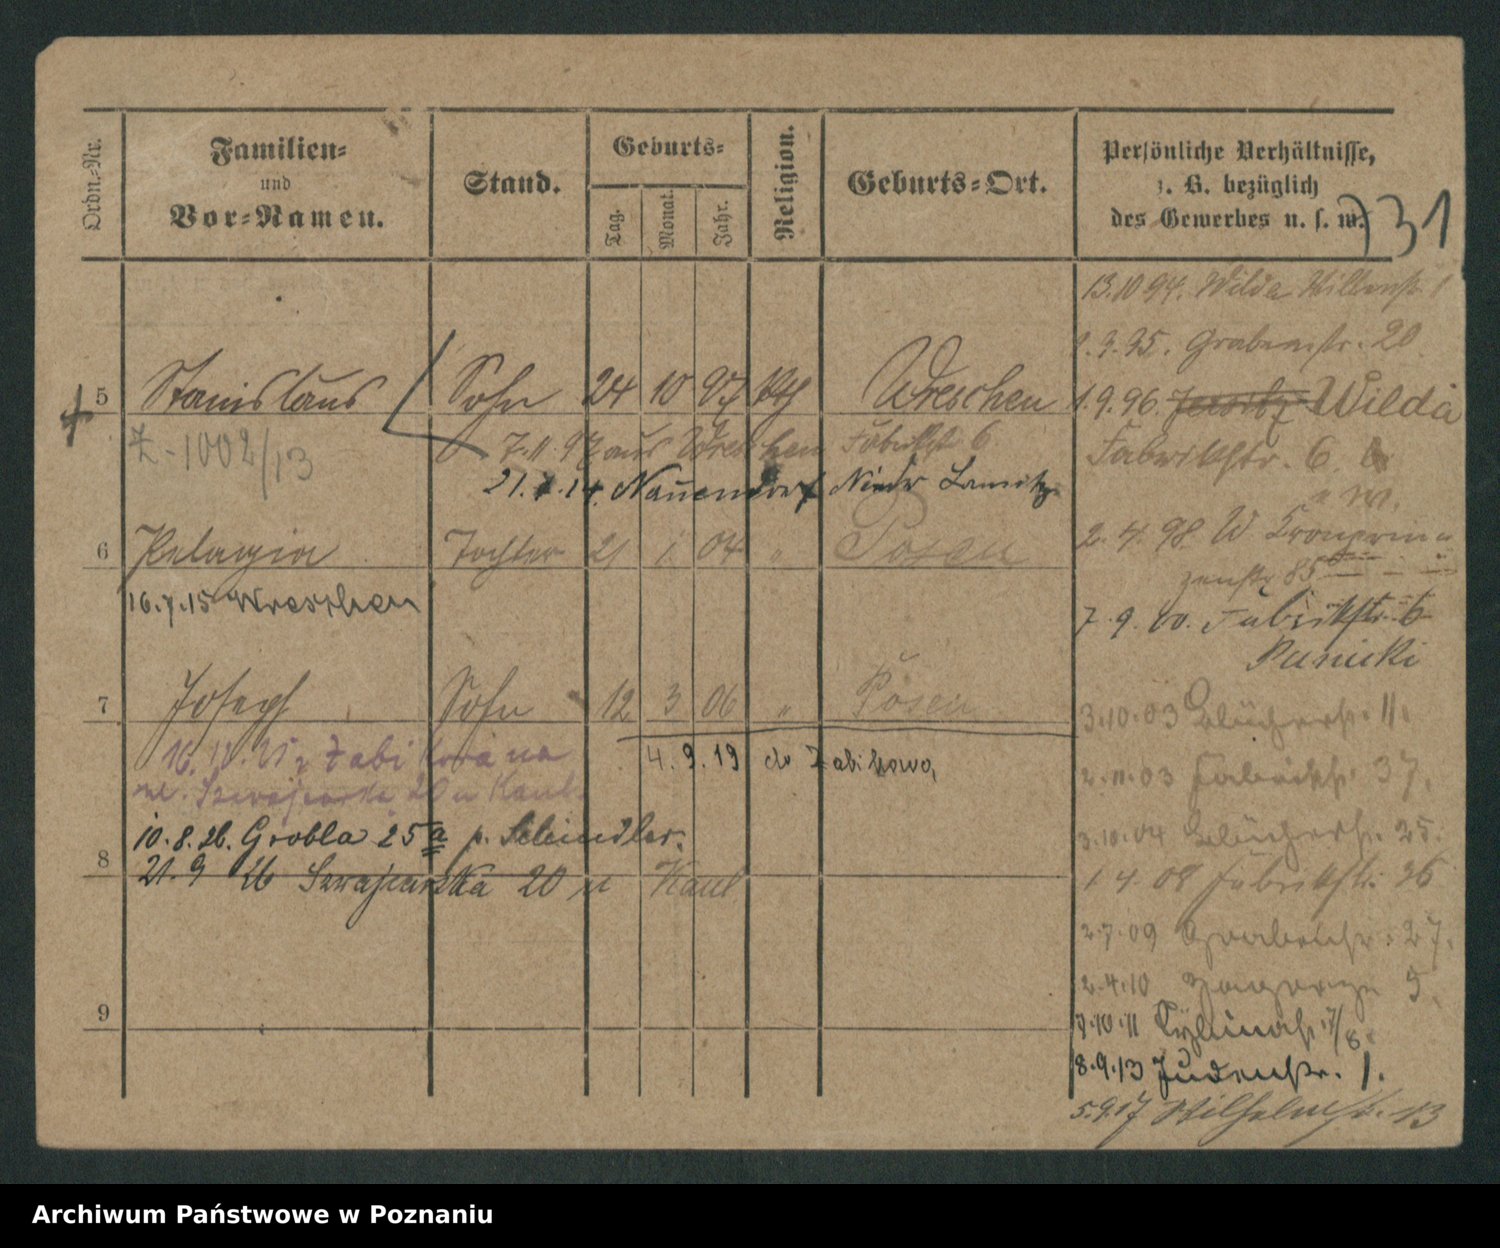 Ordn.-Nr.
Familien-
und
Vor-Namen.
Stand.
Geburts-
Tag.
Monat.
Jahr.
Religion.
Geburts-Ort.
Persönliche Verhältnisse,
z. B. bezüglich
des Gewerbes u. s. w.
731
13.10 94. Wilda
1.9.95. Grabenstr. 20
5 Stanislaus Sohn 24 10 97 kth Wreschen
1.9.96. Jersitz Wilda
Z-1002/13
7.11.97 aus Wreschen Fabrikstr 6
Fabrikstr. 6.
21. 14. Nauendorf Nieder
6 Pelagia Tochter 21 1 04 " Posen
2.4.98. W Kronprin
zenstr 85
16.7.15 Wreschen
7.9.00. Fabrikstr. 6
Panicki
7 Joseph Sohn 12 3 06 " Posen
3.10.03 Blücherstr. 11.
16. 25 z Żabikowa na
4.9.19 do Żabikowo,
2.11.03 Fabrikstr. 37.
20 u Kaul
10.8.26. Grobla 25a p. Scheindler.
3.10.04 Blücherstr. 25.
8
21.9 26 20 u Kaul
1.4.08 Fabrikstr. 36
2.7.09 Grabenstr. 27.
2.4.10 9.
9
7.10.11
8.9.13 Judenstr. 1.
5.9.17 Wilhelmstr. 13
Archiwum Państwowe w Poznaniu